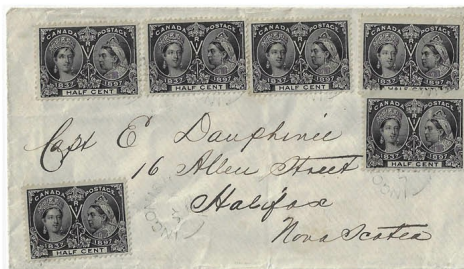 CANADA POSTAGE
1837 1897
HALF CENT
CANADA POSTAGE
1837 1897
HALF CENT
CANADA POSTAGE
1837 1897
HALF CENT
CANADA POSTAGE
1837 1897
HALF CENT
CANADA POSTAGE
1837 1897
HALF CENT
Capt E Dauphinee
16 Allen Street
Halifax
Nova Scotia
CANADA POSTAGE
1837 1897
HALF CENT